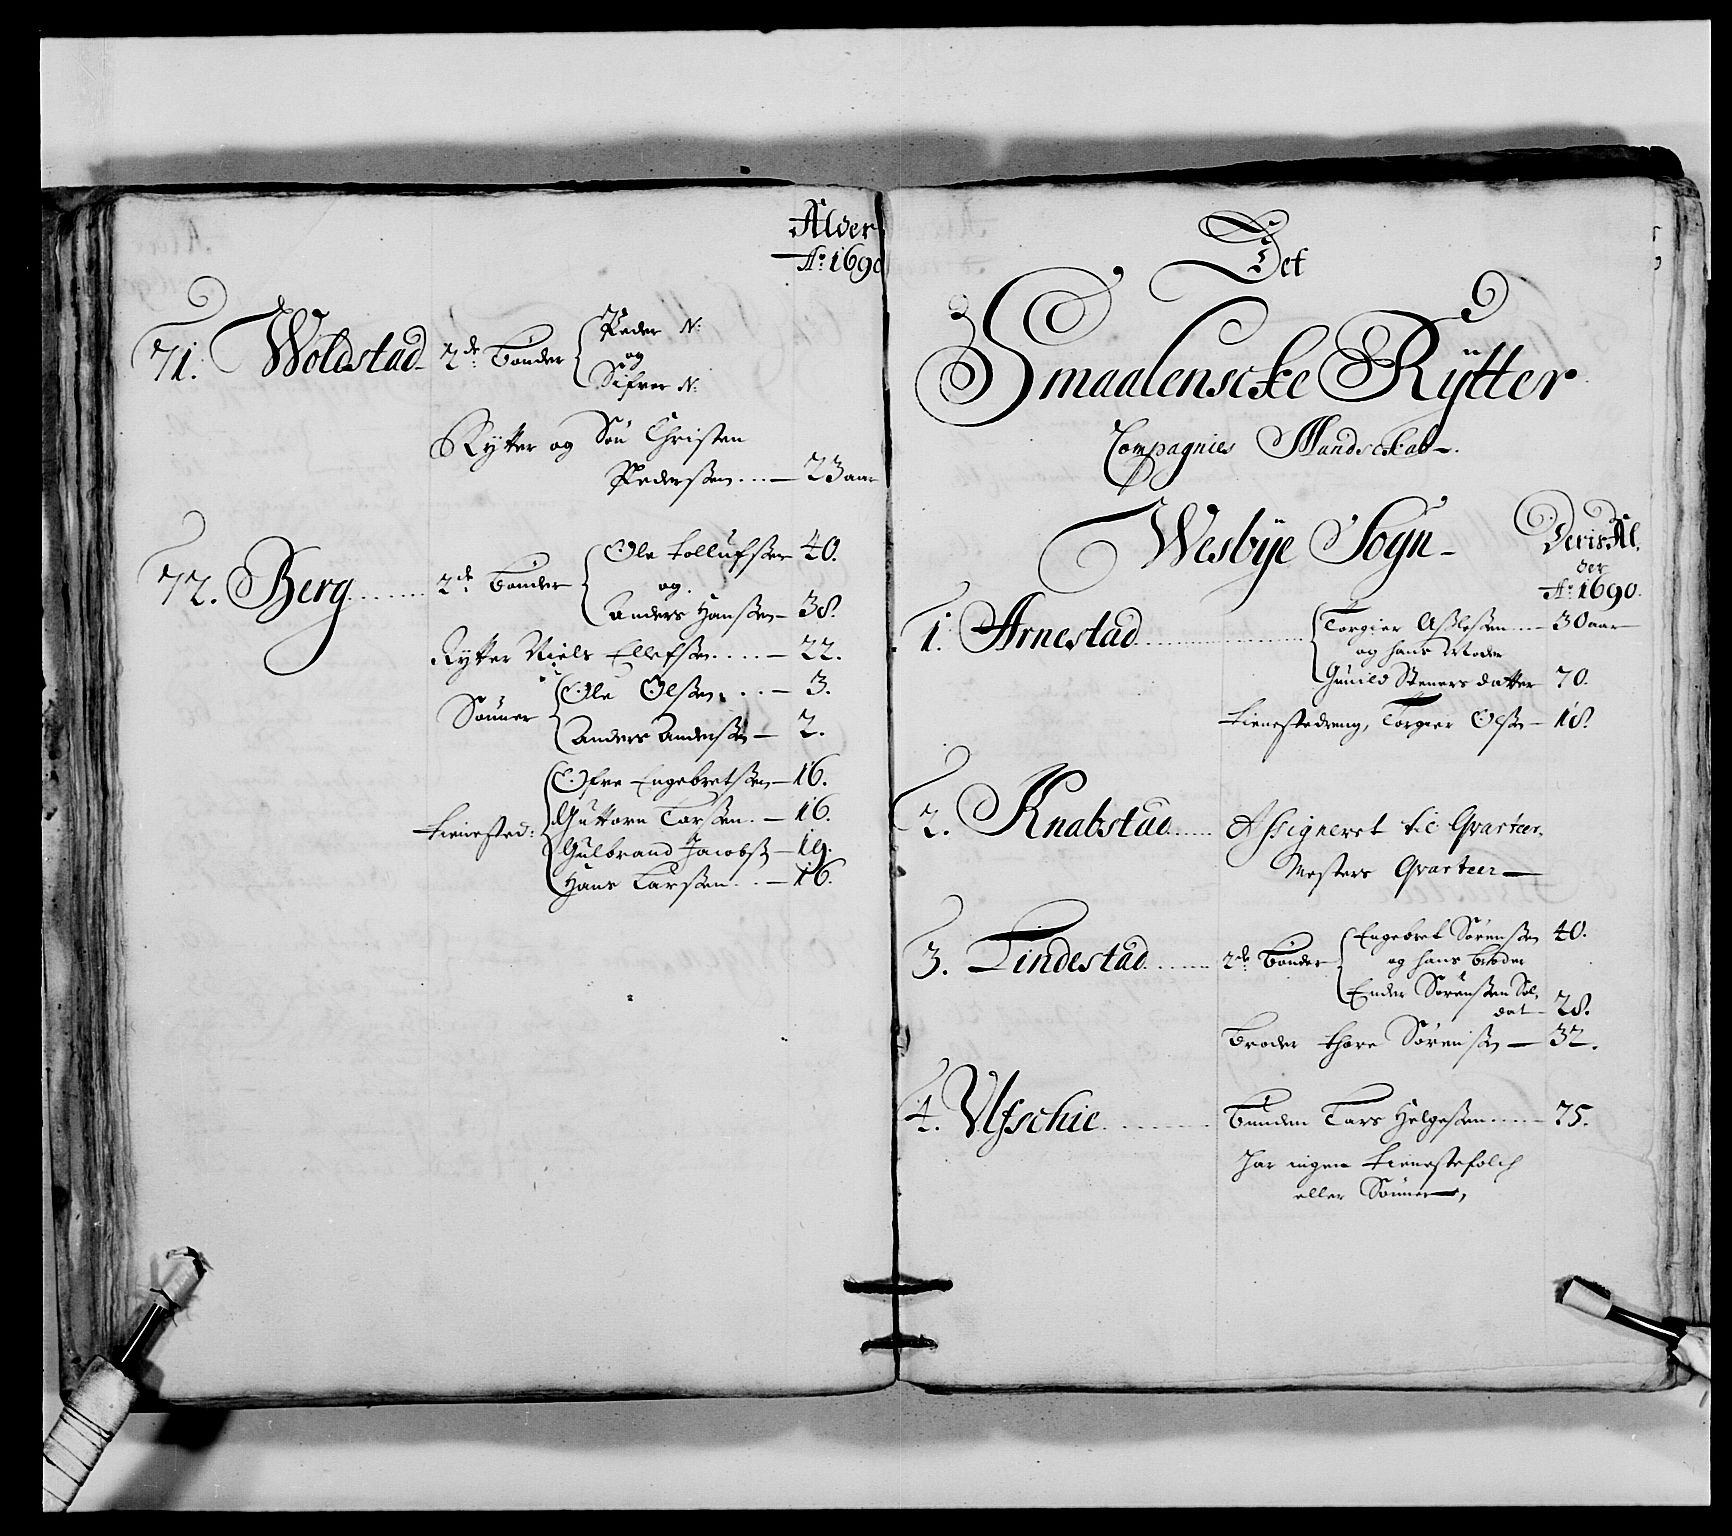 Alder
A° 1690
71. Woldstad 2de Bønder Peder N:
og
Sifver N:
Rytter og Søn Christen
Pedersen ... 23 aar
72. Berg ........ 2de Bønder Ole Tollufsen 40.
og
Anders Hansen - 38.
Rytter Niels Ellefsen .... - 22.
Sønner Ole Olsen . . . - 3.
Anders Andersen - 2.
Tienested: Ofre Engebretsen - 16.
Guttorm Larssen . - 16.
Gulbrand Jacobs: - 19.
Hans Larssen . . - 16.
Det
Smaalenscke Rÿtter
Compagnies Mandsckab.
Wesbÿe Sogn
Deris Al,,
der
A° 1690.
1. Arnestad ........ Torgier Aslesen ... 30 aar
og hans Moder
Gunild Steners datter 70.
Tienestedreng, Torgier Olsen - 18.
2. Knabstad ..... Assigneret til Qvarteer,,
Mesters Qvarteer
3. Lindestad ....... 2de Bønder Engebret Sørensen 40.
og hans broder
Ender Sørensen Sol,,
dat - 28.
Broder Thore Sørensen - 32.
4. Ulfschie ........ Bunden Lars Helgesen ..... 75.
Har ingen tienestefolch
eller Sønner,